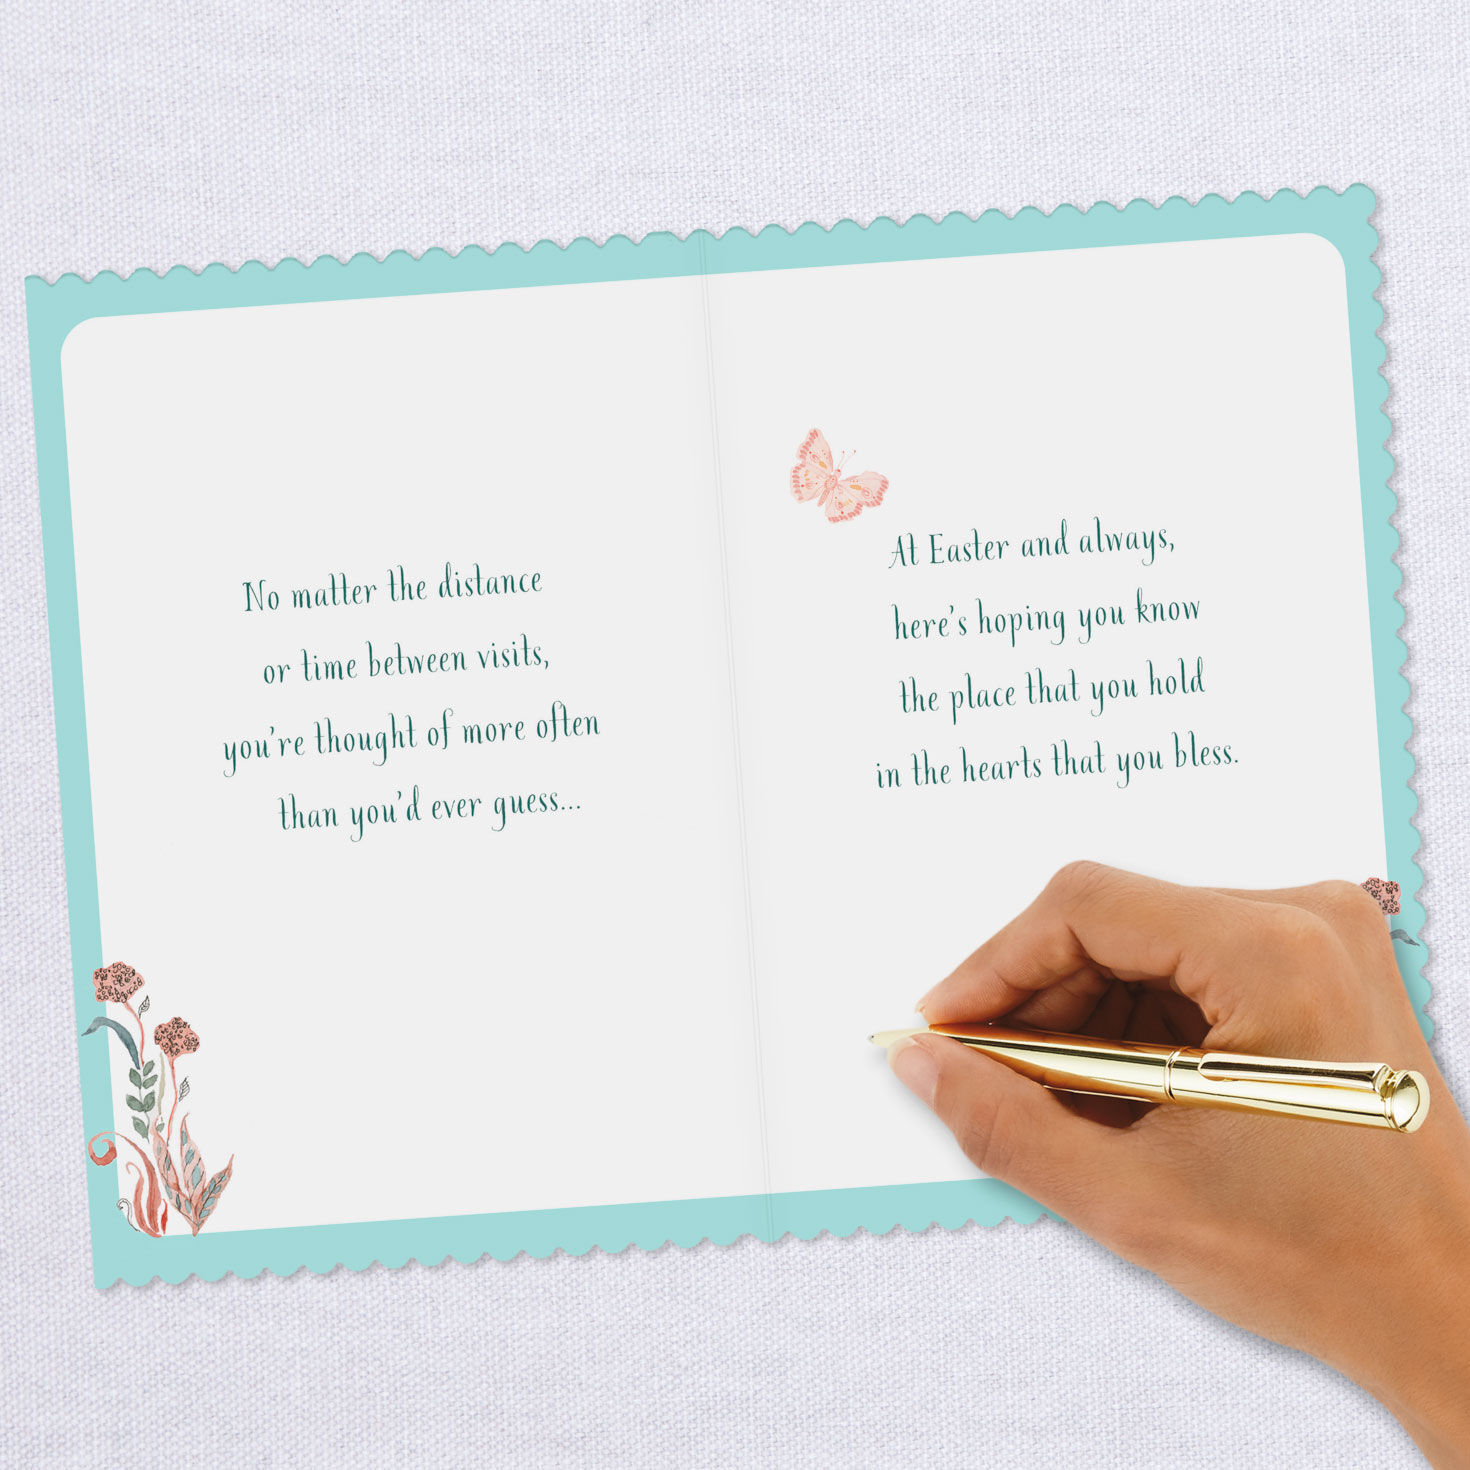 No matter the distance
or time between visits,
you're thought of more often
than you'd ever guess...
At Easter and always,
here's hoping you know
the place that you hold
in the hearts that you bless.